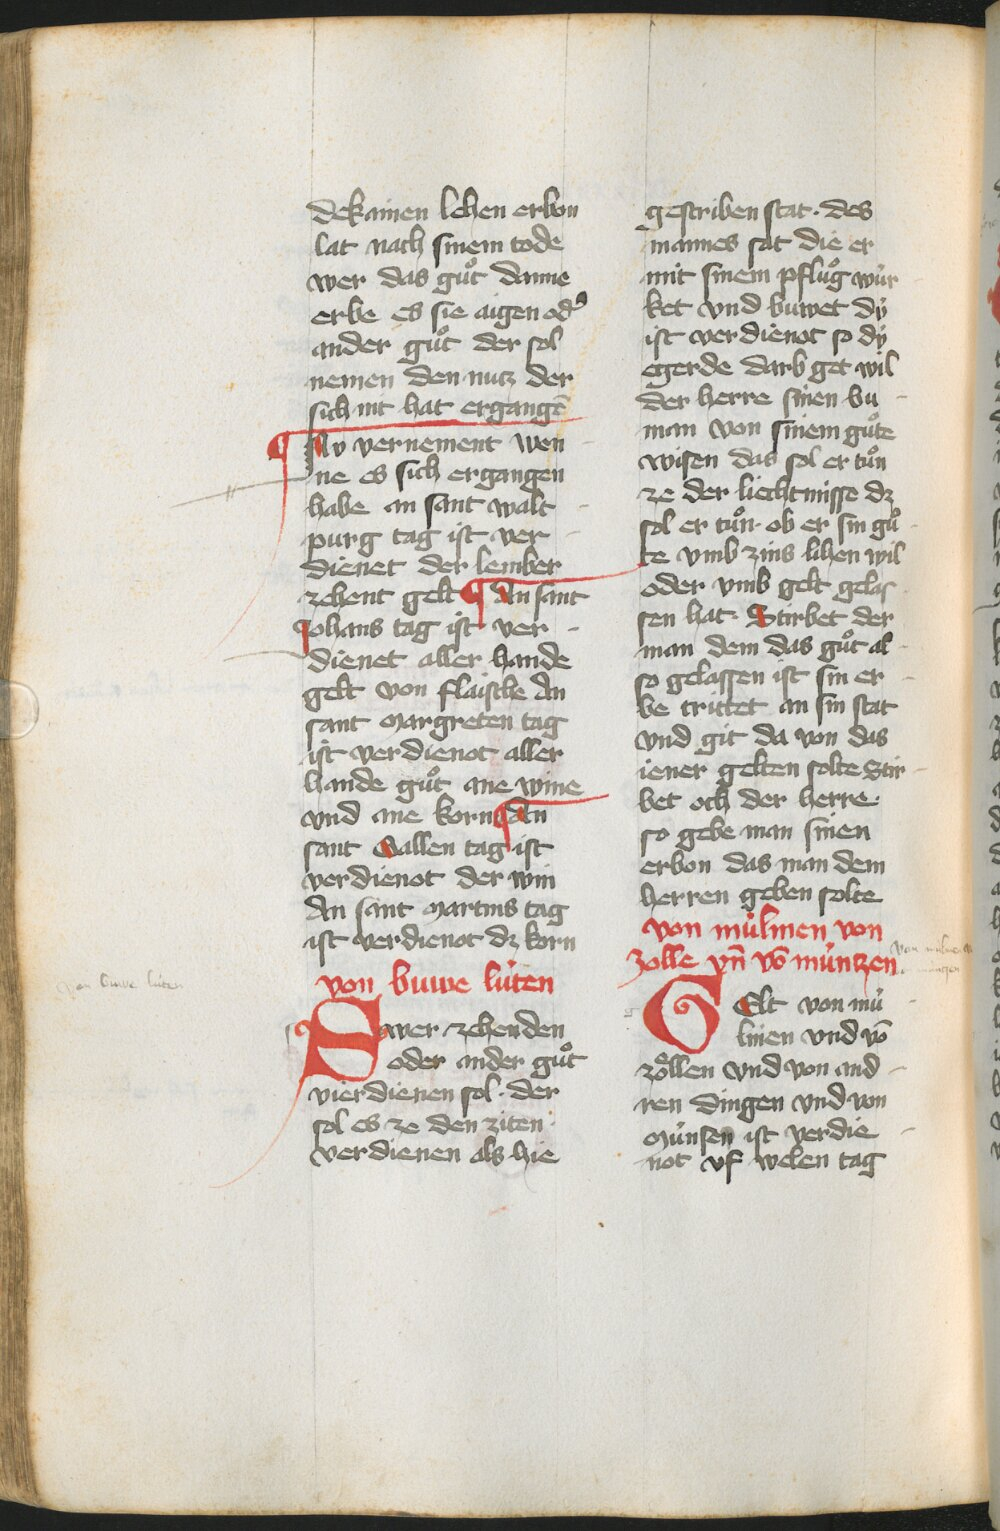 dekainen lehen erbon
lat nach sinem tode
wer das guͦt danne
erbe es sie aigen od᾽
ander guͦt der sol
nemen den nutz der
sich nit hat ergangē
¶ Nv vernement wen
ne es sich ergangen
habe an sant walt
purg tag ist ver
dienet der lember
zehent gelt ¶ An sant
Johans tag ist ver
dienet aller hande
gelt von flaische An
sant margreten tag
ist verdienot aller
hande guͦt ane wine
vnd ane korn ¶ An
sant Gallen tag ist
verdienot der win
An sant martins tag
ist verdienot dz korn
von buwe lúten
Swer zehenden
oder ander guͦt
vierdienen sol · der
sol es ze den ziten
verdienen als hie
gescriben stat · des
mannes sat die er
mit sinem pfluͦg wúr
ket vnd buwet dÿ
ist verdienot so dÿ
egerde darb get wil
der herre sinen bu
man von sinem guͦte
wisen das sol er tuͦn
ze der liechtmisse dz
sol er tuͦn · ob er sin guͦ
te vmb zins lihen wil
oder vmb gelt gelas
sen hat · Stirbet der
man dem das guͦt al
so gelassen ist sin er
be trittet an sin stat
vnd git da von das
iener gelten solte Stir
bet och der herre ·
so gebe man sinen
erbon das man dem
herren geben solte
von múlinen von
zolle vn̄ vō múntzen
GElt von mú
linen vnd vō
zoͤllen vnd von and
ren dingen vnd von
múnsen ist verdie
not vf welen tag
von buwe lúten